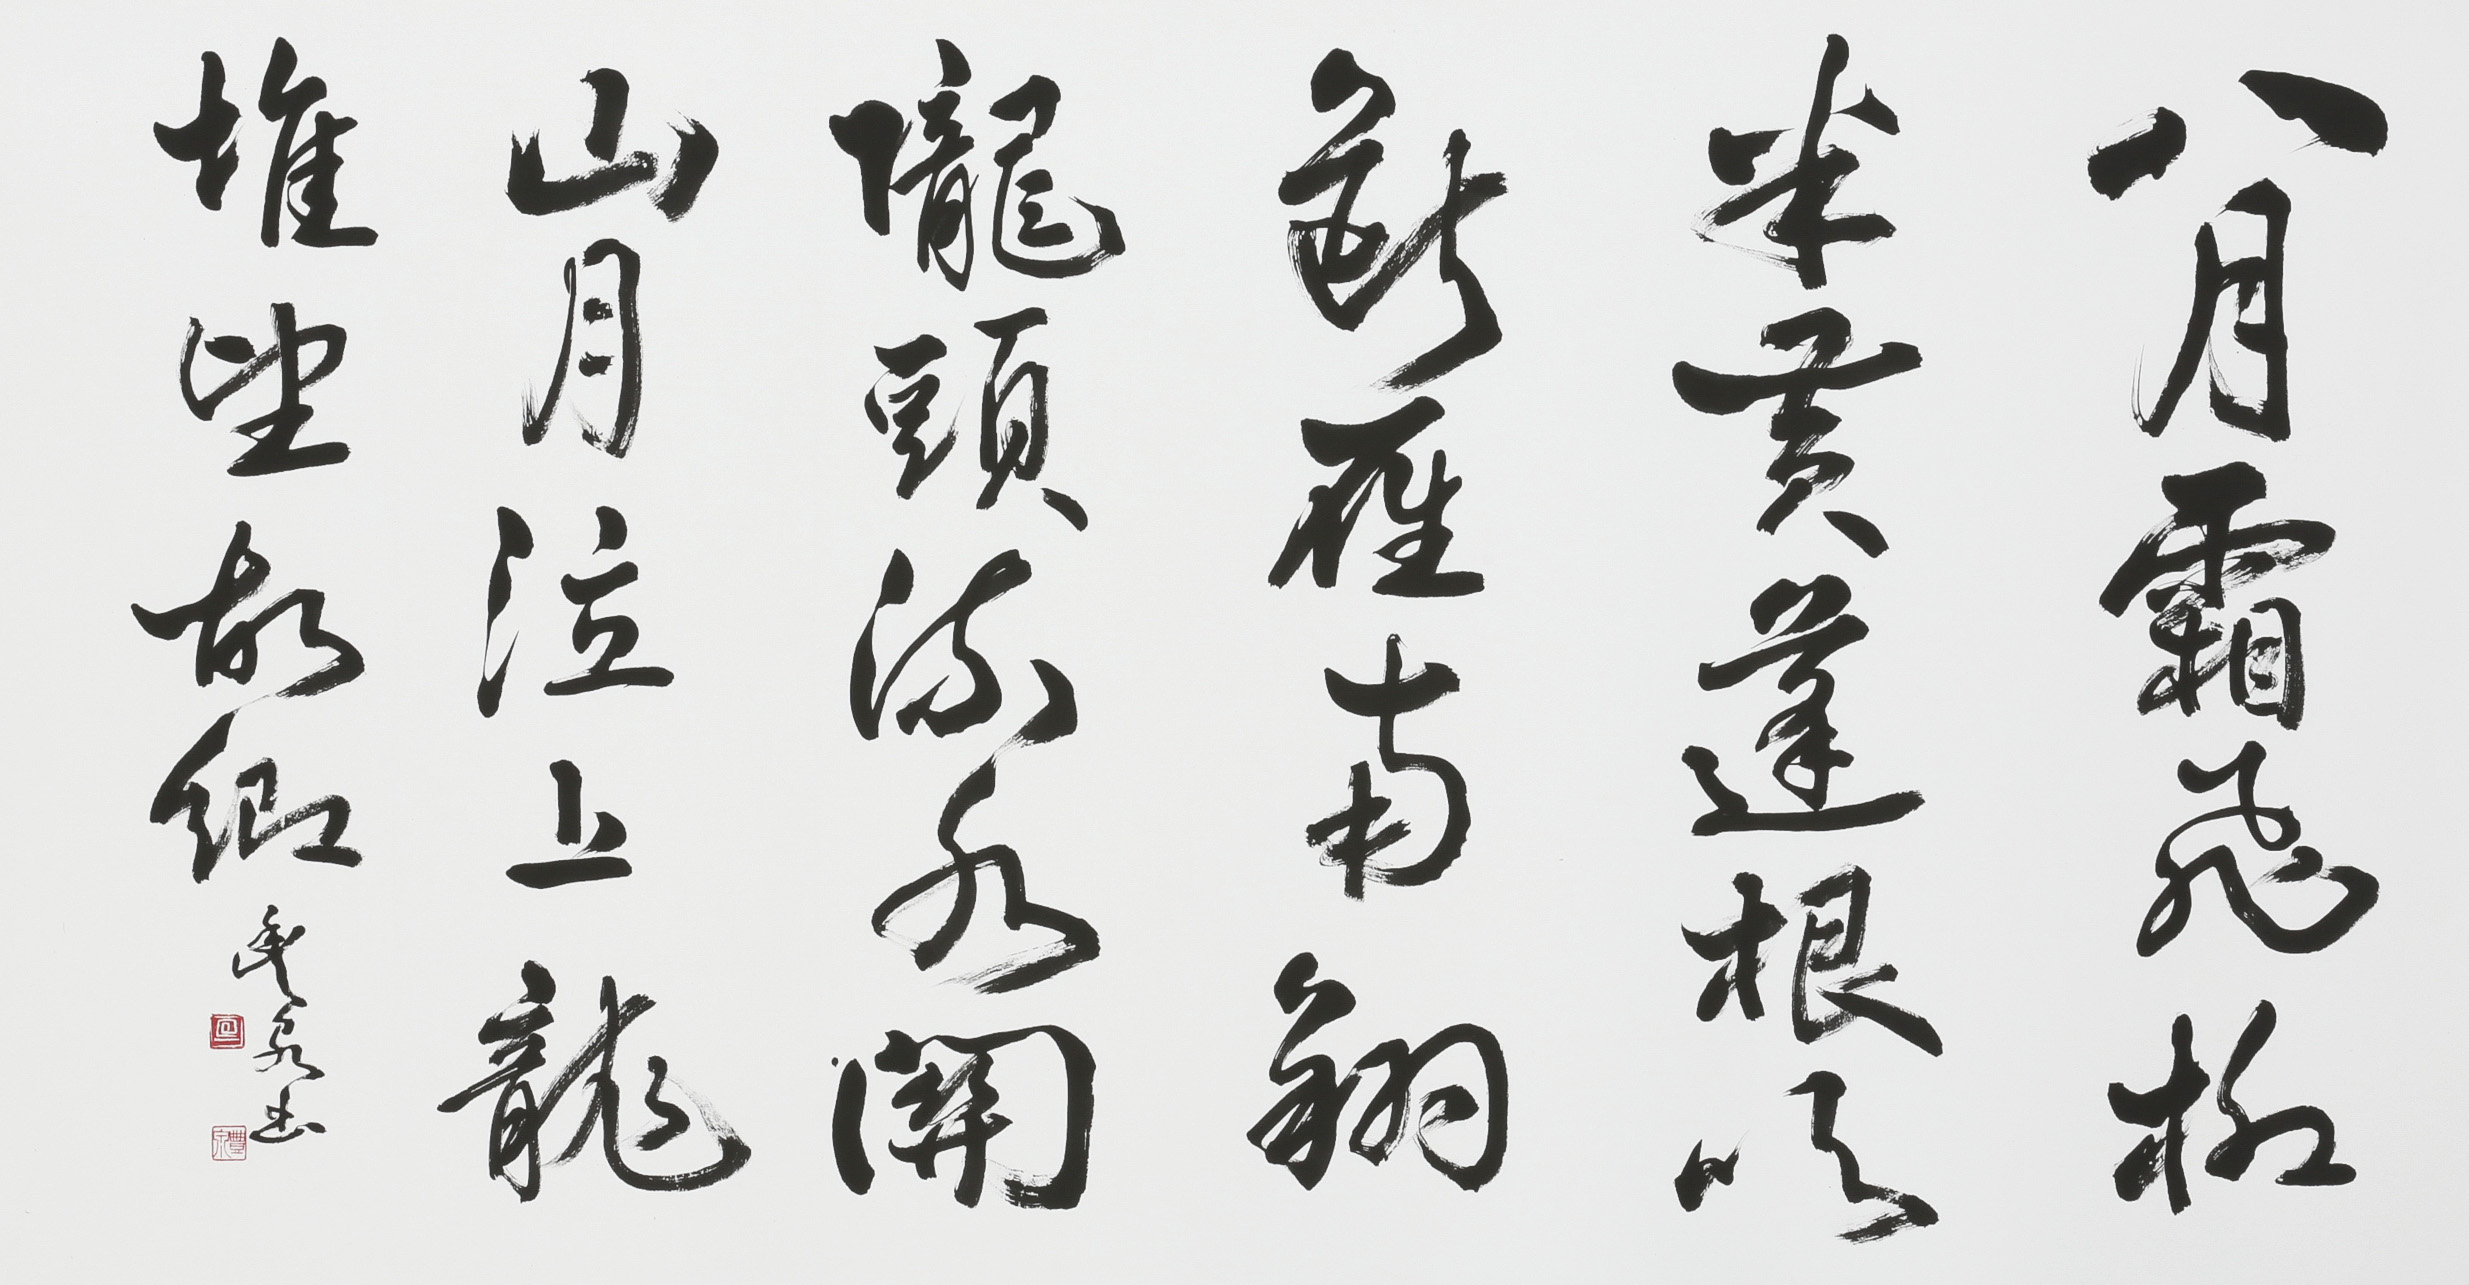 八月霜飛柳
半黄蓬根吹
斷雁南翔
隴頭流水關
山月泣上龍
堆望故郷
泉書